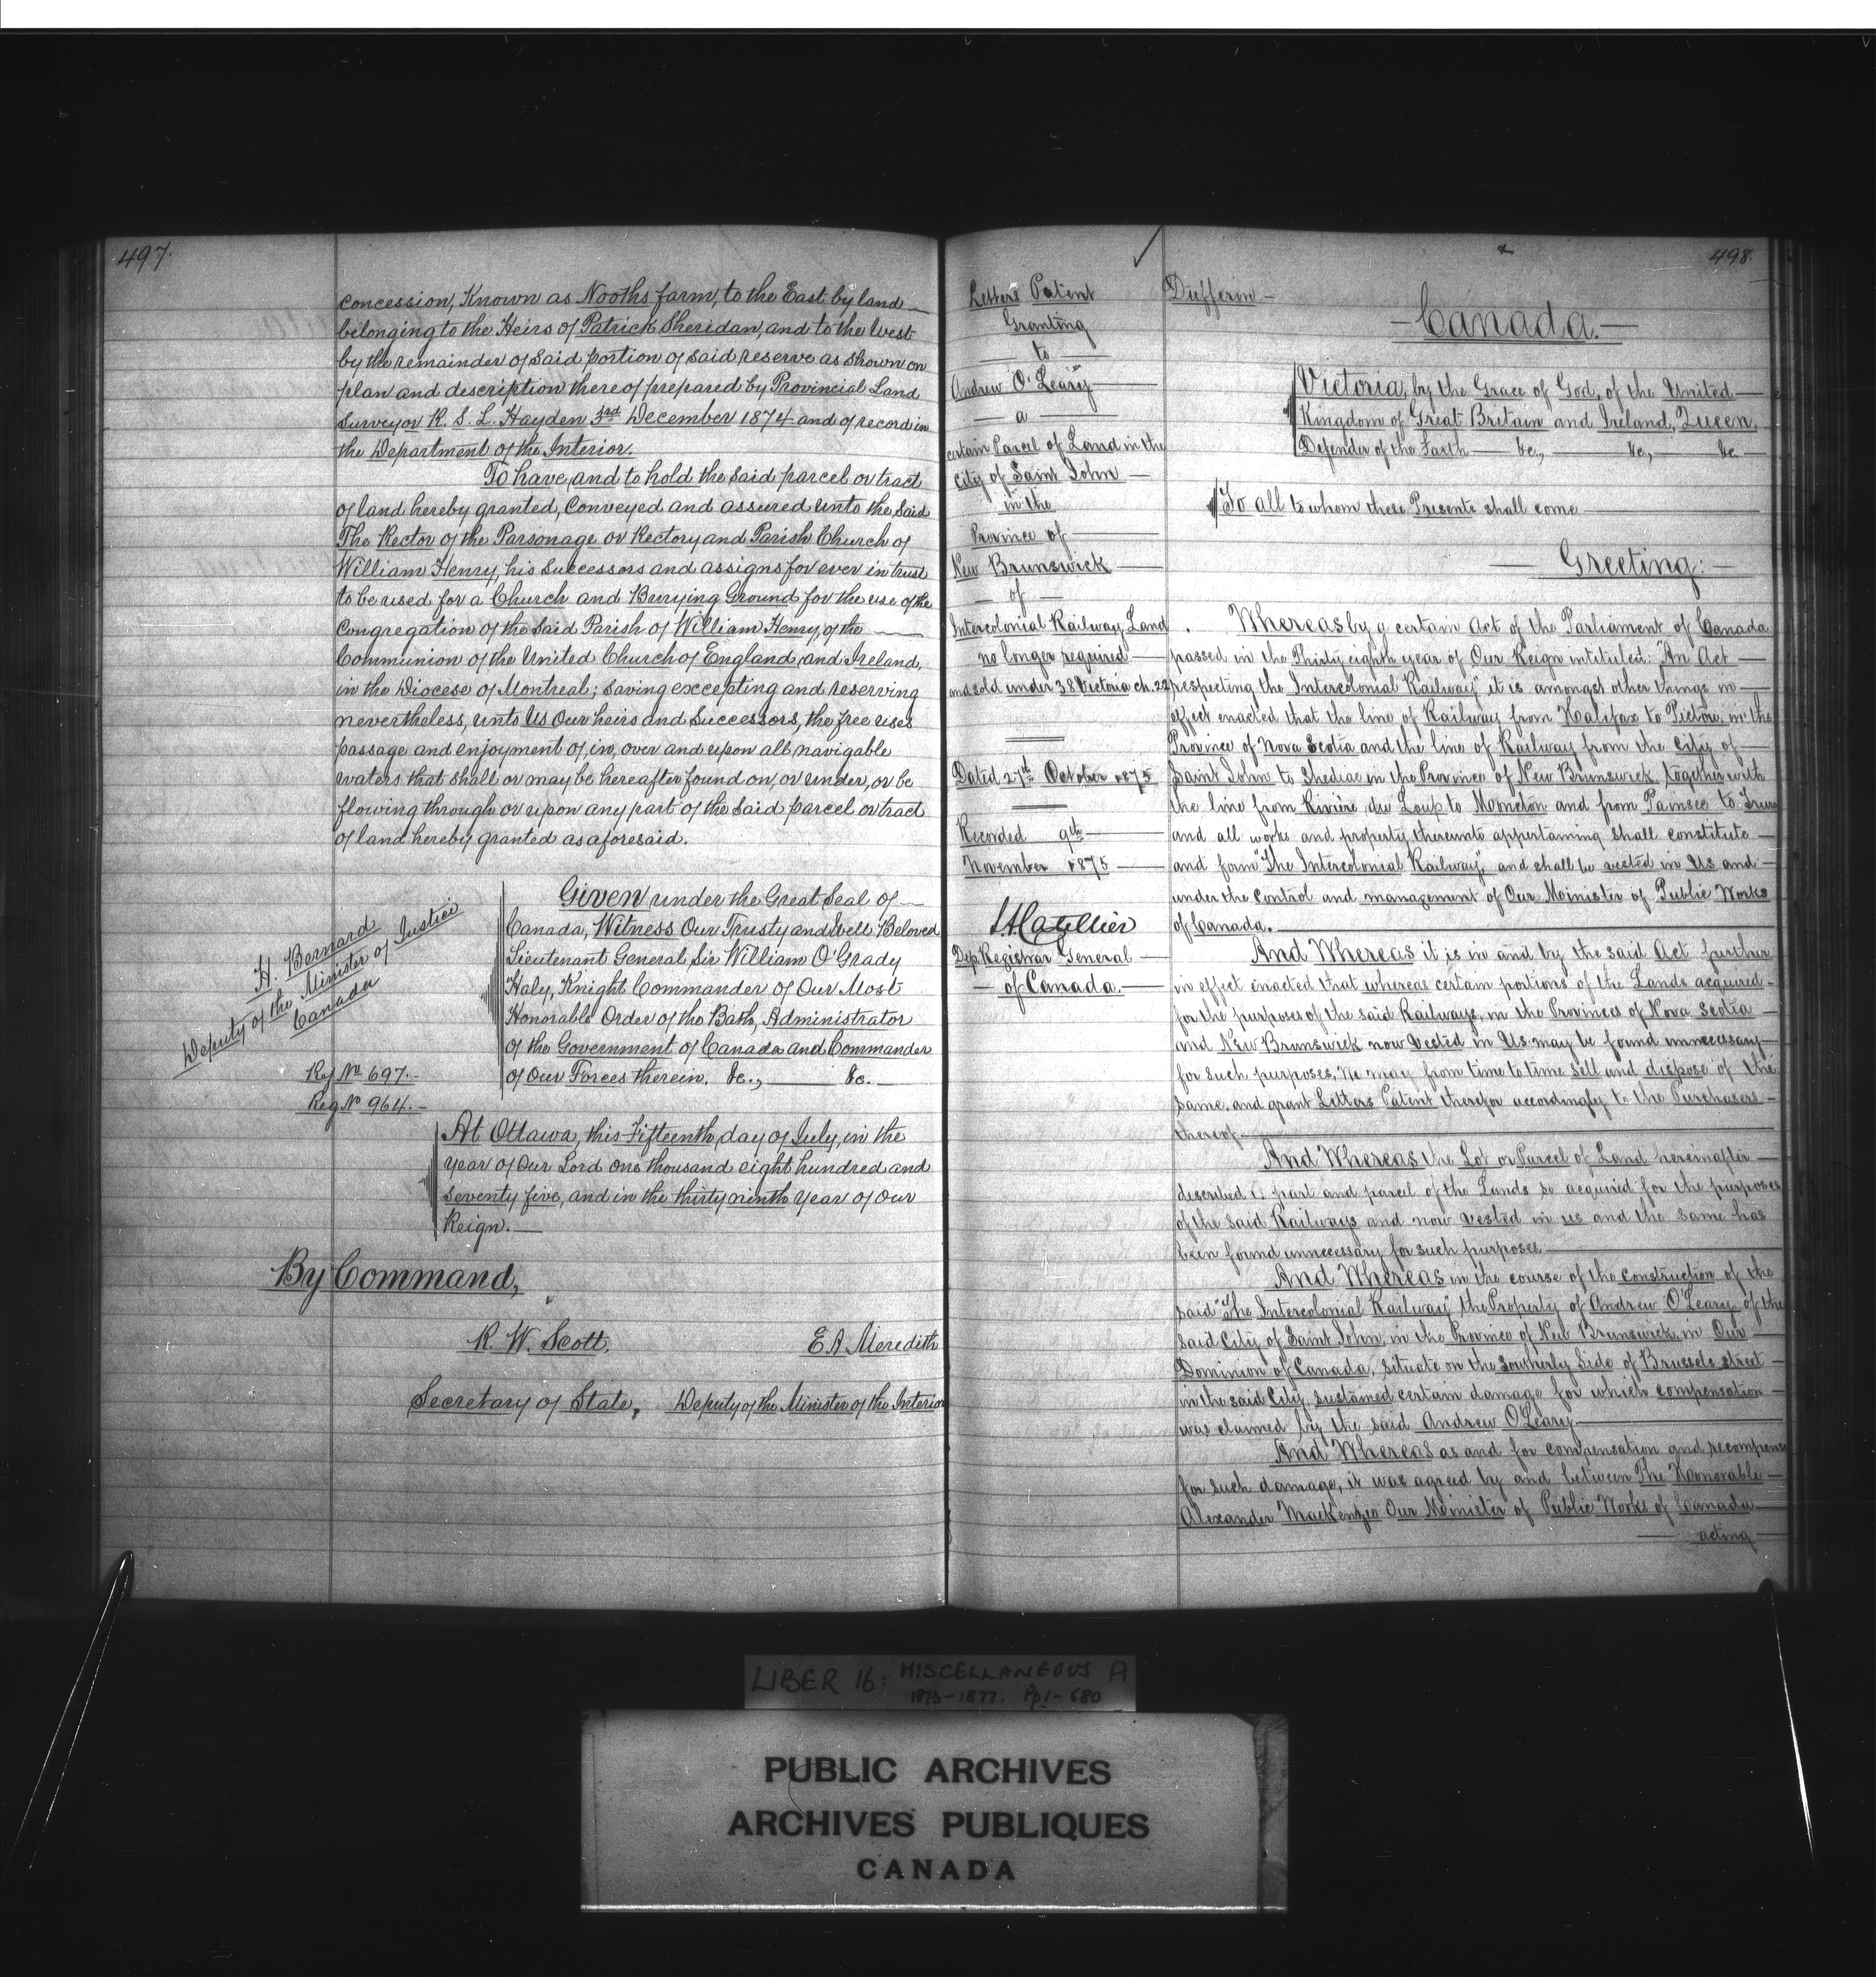 497.
concession, Known as Nooths farm, to the East by land
belonging to the Heirs of Patrick Sheridan, and to the West
by the remainder of said portion of said reserve as shown on
plan and description thereof prepared by Provincial Land
Surveyor R. S. L. Hayden 3rd December 1874 and of record in
the Department of the Interior.
To have and to hold the said parcel or tract
of land hereby granted, conveyed and assured unto the said
The Rector of the Parsonage or Rectory and Parish Church of
William Henry, his Successors and assigns for ever in trust
to be used for a Church and Burying Ground for the use of the
Congregation of the said Parish of William Henry, of the
Communion of the United Church of England and Ireland,
in the Diocese of Montreal; saving excepting and reserving
nevertheless, unto Us Our heirs and Successors, the free uses
passage and enjoyment of, in, over and upon all navigable
waters that shall or may be hereafter found on, or under, or be
flowing through or upon any part of the said parcel or tract
of land hereby granted as aforesaid.
Given under the Great Seal of
Canada, Witness Our Trusty and Well Beloved
Lieutenant General Sir William O'Grady
Haly, Knight Commander of Our Most
Honorable Order of the Bath, Administrator
of the Government of Canada and Commander
of Our Forces therein, &c., &c.
H. Bernard
Deputy of the Minister of Justice
Canada
Ref No 697.
Reg No 964.
At Ottawa, this Fifteenth day of July, in the
year of Our Lord one thousand eight hundred and
seventy five, and in the thirty ninth year of Our
Reign.
By Command,
R. W. Scott, E A Meredith
Secretary of State, Deputy of the Minister of the Interior
498.
Letters Patent
Granting
to
Andrew O'Leary
a
certain Parcel of Land in the
City of Saint John
in the
Province of
New Brunswick
of
Intercolonial Railway Land
no longer required
and sold under 38 Victoria ch. 22
Dated 27th October 1875
Recorded 9th
November 1875
Dep. Registrar General
of Canada.
Dufferin
Canada.
Victoria, by the Grace of God, of the United
Kingdom of Great Britain and Ireland, Queen,
Defender of the Faith &c., &c., &c
To all to whom these Presents shall come
Greeting:
Whereas by a certain Act of the Parliament of Canada
passed in the Thirty eighth year of Our Reign intituled: "An Act
respecting the Intercolonial Railway" it is amongst other things in
effect enacted that the line of Railway from Halifax to Pictou, in the
Province of Nova Scotia and the line of Railway from the City of
Saint John to Shediac in the Province of New Brunswick, together with
the line from Rivière du Loup to Moncton and from Painsec to Truro
and all works and property thereunto appertaining shall constitute
and form "The Intercolonial Railway", and shall be vested in Us and
under the control and management of Our Minister of Public Works
of Canada.
And Whereas it is in and by the said Act further
in effect enacted that whereas certain portions of the Lands acquired
for the purposes of the said Railways, in the Provinces of Nova Scotia
and New Brunswick now vested in Us may be found unnecessary
for such purposes, We may from time to time sell and dispose of the
same, and grant Letters Patent therefor accordingly to the Purchasers
thereof
And Whereas the Lot or Parcel of Land hereinafter
described is part and parcel of the Lands so acquired for the purposes
of the said Railways and now vested in us and the same has
been found unnecessary for such purposes.
And Whereas in the course of the construction of the
said "The Intercolonial Railway" the Property of Andrew O'Leary of the
said City of Saint John, in the Province of New Brunswick, in Our
Dominion of Canada, situate on the Southerly Side of Brussels street
in the said City, sustained certain damage for which compensation
was claimed by the said Andrew O'Leary
And Whereas as and for compensation and recompense
for such damage, it was agreed by and between The Honorable
Alexander MacKenzie Our Minister of Public Works of Canada
acting
LIBER 16: MISCELLANEOUS A
1873-1877. Pp 1-680
PUBLIC ARCHIVES
ARCHIVES PUBLIQUES
CANADA